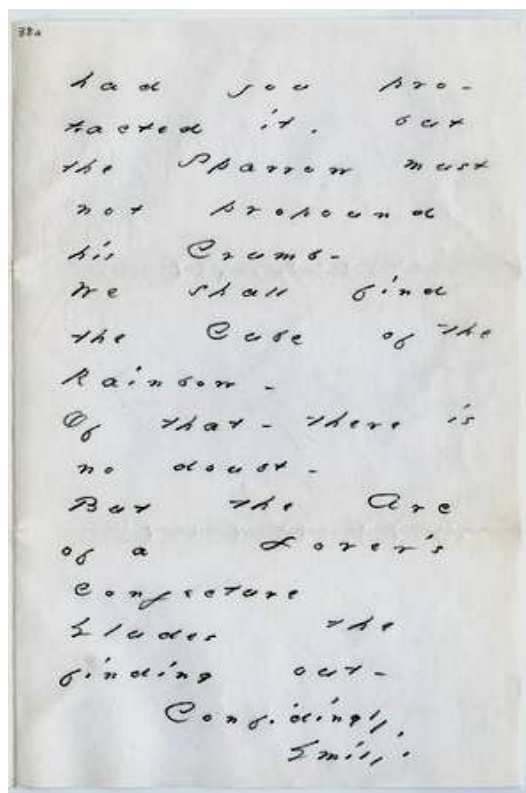 38a
had you pro-
tracted it, but
the Sparrow must
not propound
his Crumb -
We shall find
the Cube of the
Rainbow -
Of that - there is
no doubt -
But the Arc
of a Lover's
conjecture
Eludes the
finding out -
Confidingly,
Emily.